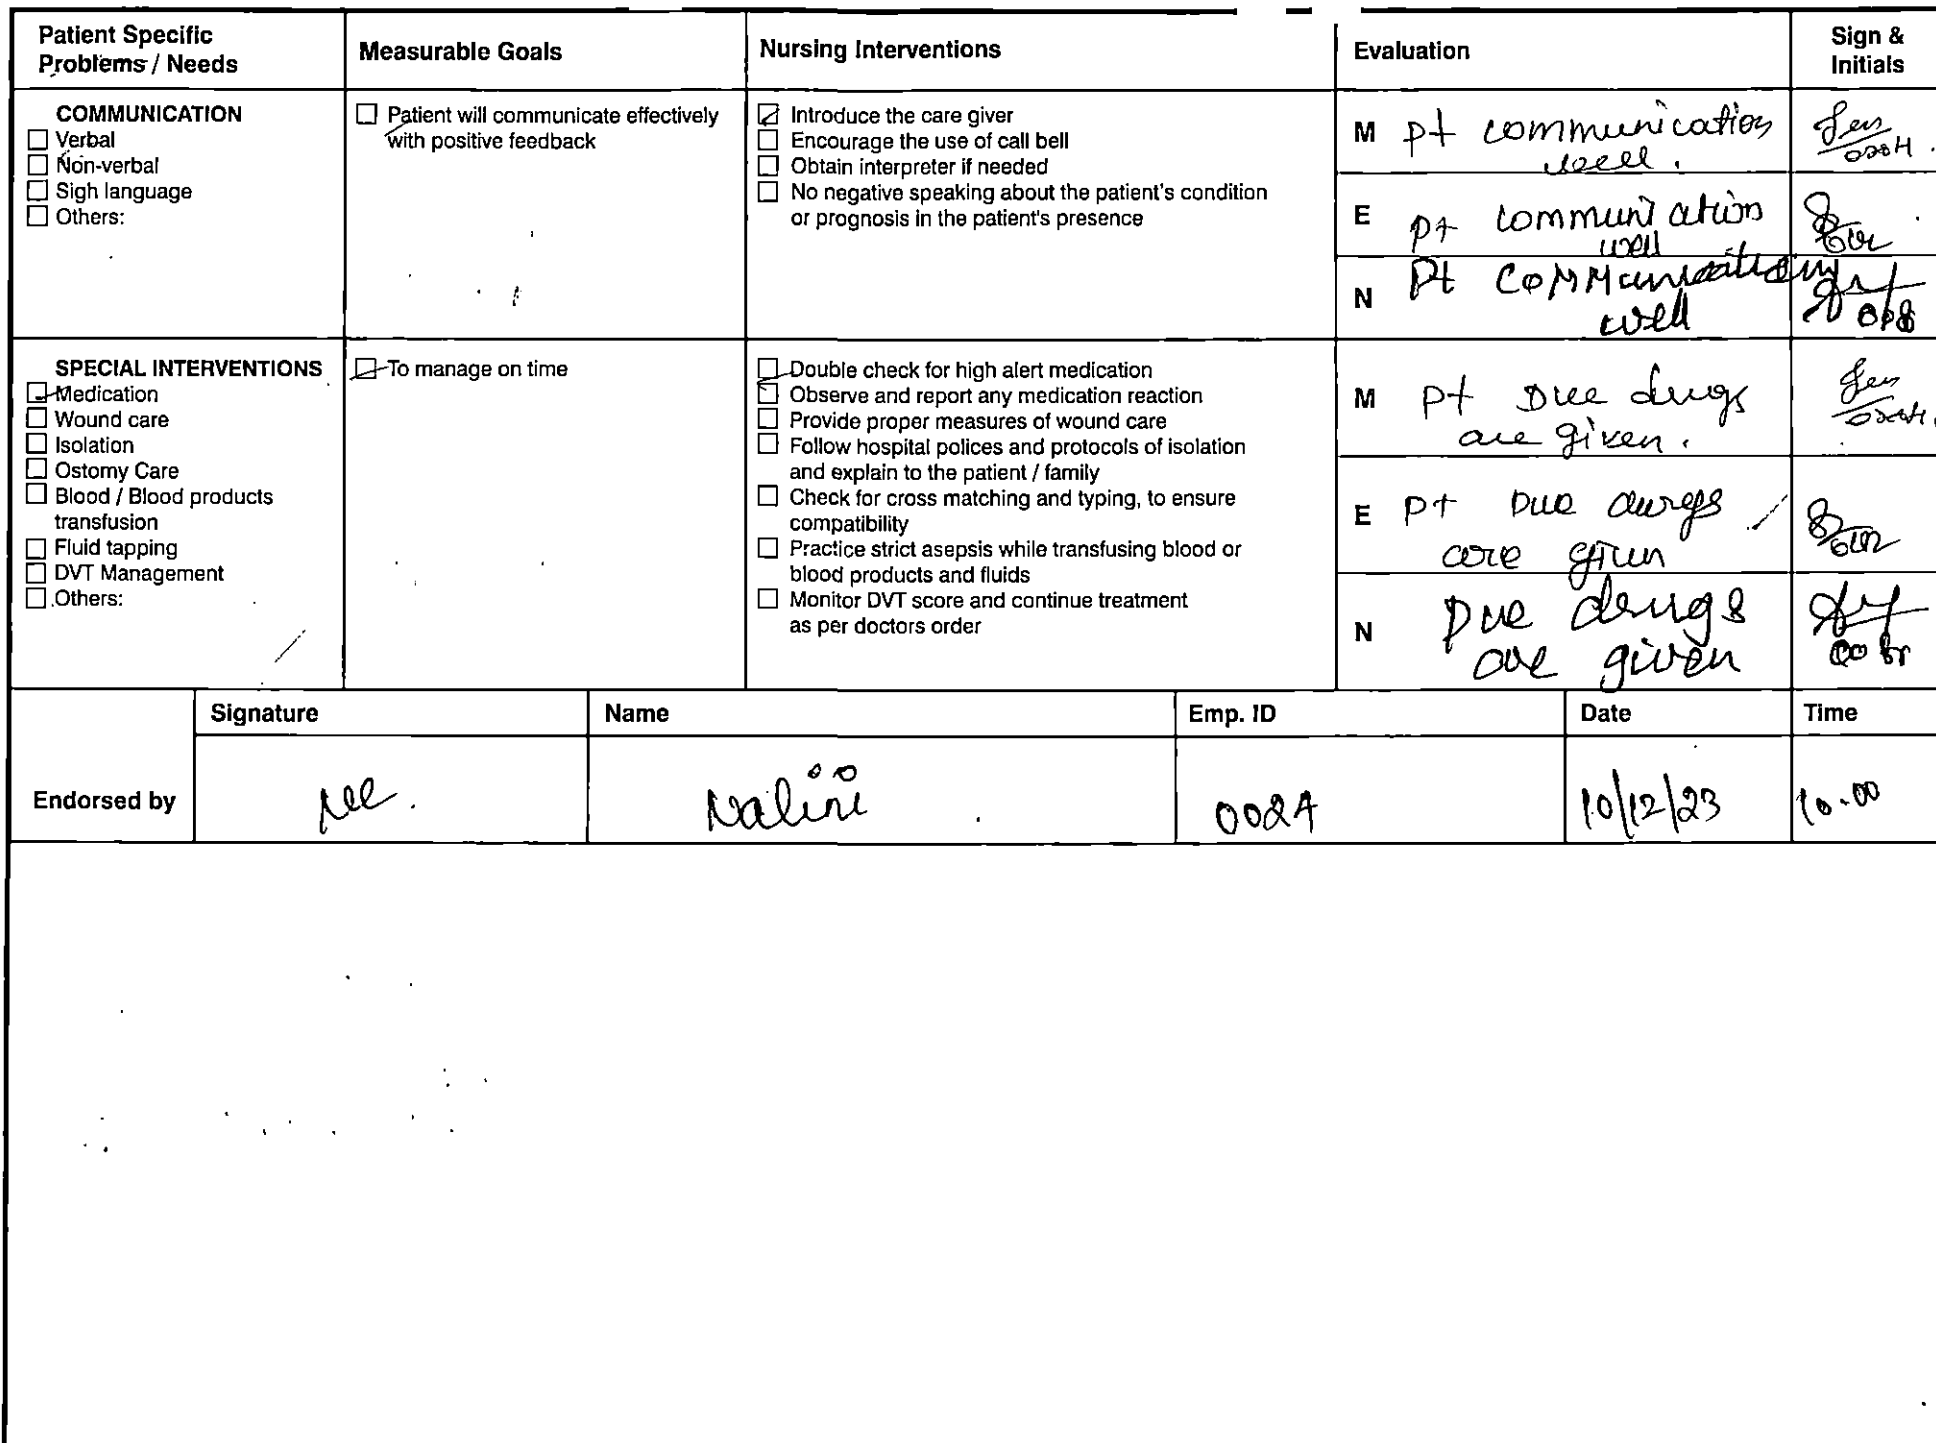 Patient Specific Problems / Needs
Measurable Goals
Nursing Interventions
Evaluation
Sign & Initials
COMMUNICATION
Verbal
Non-verbal
Sigh language
Others:
Patient will communicate effectively
with positive feedback
Introduce the care giver
Encourage the use of call bell
Obtain interpreter if needed
No negative speaking about the patient's condition
or prognosis in the patient's presence
M pt communication
well.
E pt communication
well
N Pt communication
well
SPECIAL INTERVENTIONS
Medication
Wound care
Isolation
Ostomy Care
Blood / Blood products
transfusion
Fluid tapping
DVT Management
Others:
To manage on time
Double check for high alert medication
Observe and report any medication reaction
Provide proper measures of wound care
Follow hospital polices and protocols of isolation
and explain to the patient / family
Check for cross matching and typing, to ensure
compatibility
Practice strict asepsis while transfusing blood or
blood products and fluids
Monitor DVT score and continue treatment
as per doctors order
M pt Due drugs
are given.
E pt Due
given
N Due drugs
are given
Signature
Name
Emp. ID
Date
Time
Endorsed by
Nalini
0024
10/12/23
10.00